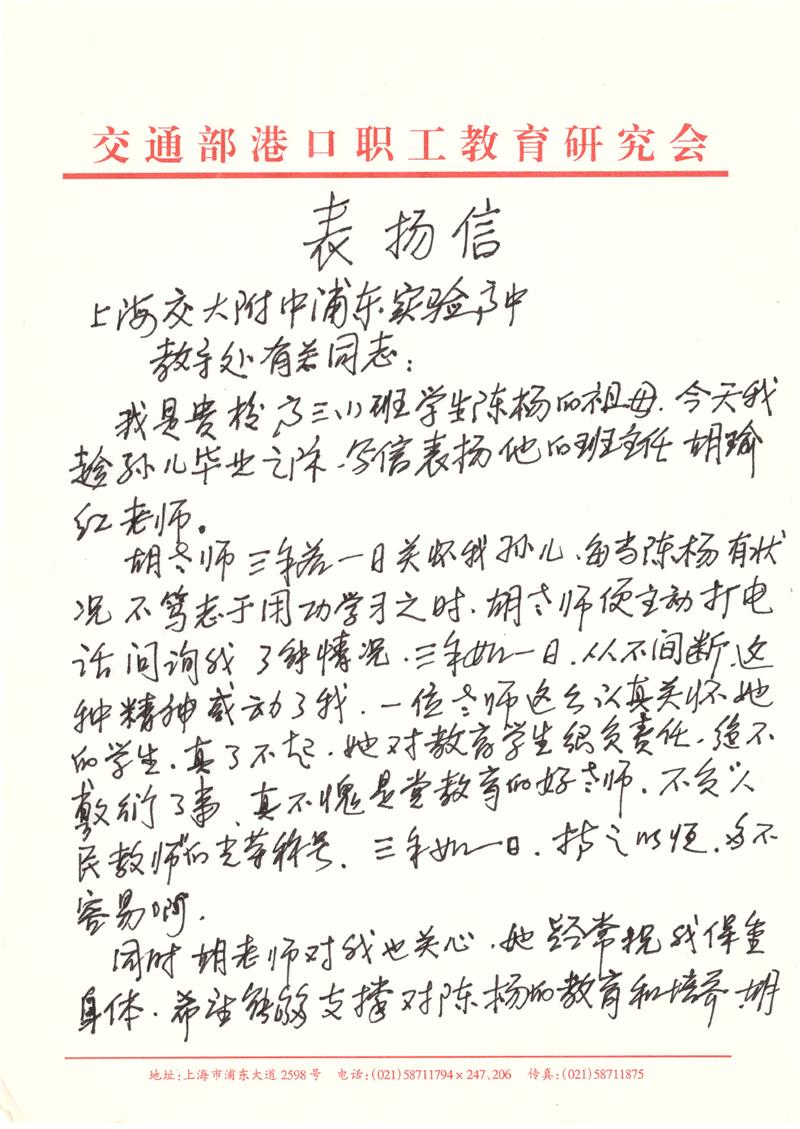 交通部港口职工教育研究会
表扬信
上海交大附中浦东实验高中
教学处有关同志：
我是贵校高三(1)班学生陈杨的祖母.今天我
趁孙儿毕业之际.写信表扬他的班主任胡瑜
红老师。
胡老师三年若一日关怀我孙儿、每当陈杨有状
况不笃志于用功学习之时.胡老师便主动打电
话问询我了解情况.三年如一日.从不间断.这
种精神感动了我.一位老师这么认真关怀她
的学生.真了不起.她对教育学生很负责任.绝不
敷衍了事、真不愧是党教育的好老师.不负“人
民教师”的光荣称号.三年如一日.持之以恒.多不
容易啊.
同时胡老师对我也关心.她经常祝我保重
身体.希望能够支撑对陈杨的教育和培养.胡
地址:上海市浦东大道2598号 电话:(021)58711794×247、206 传真:(021)58711875